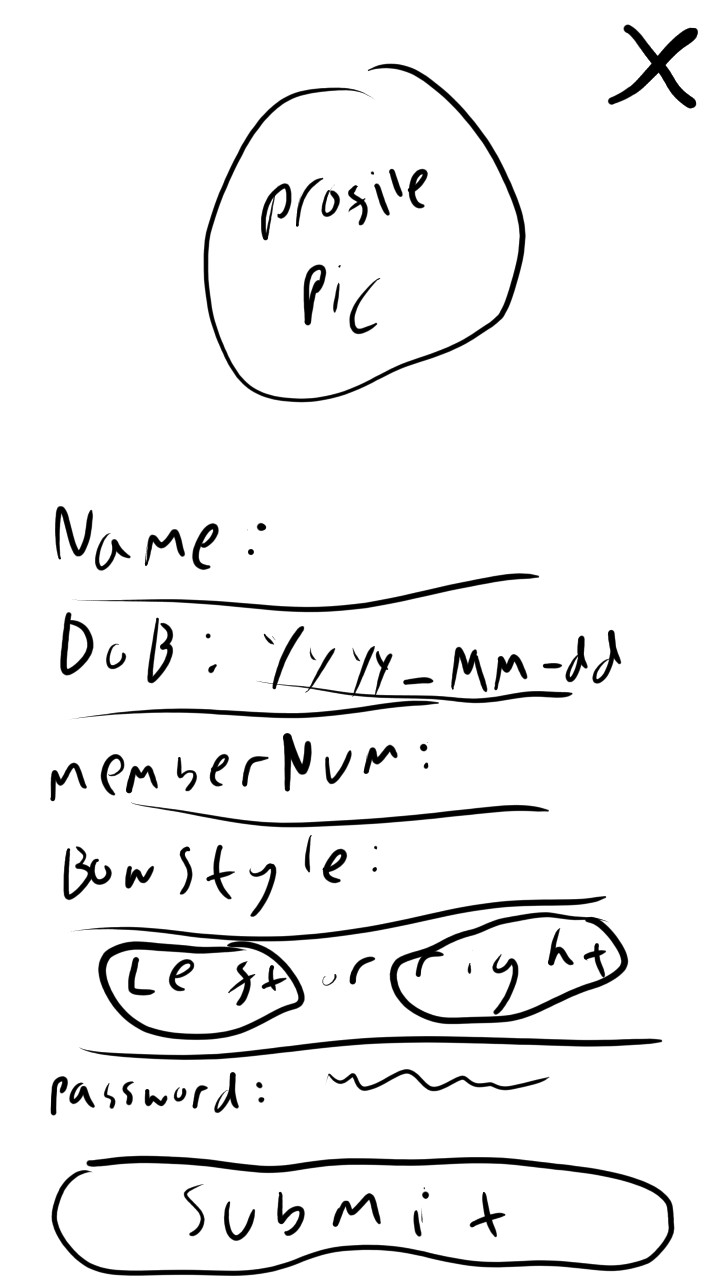 X
profile
pic
Name:
DoB: YYYY-MM-dd
memberNum:
Bowstyle:
Left or right
password:
submit